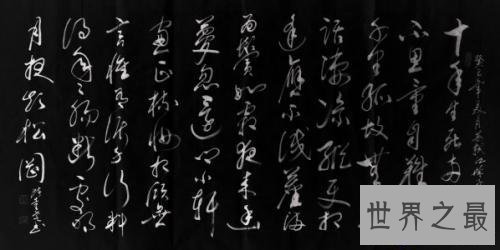 十年生死兩
不思量自難
千里孤坟無
話凄涼縱使相
逢應不識塵滿
面鬢如霜夜来幽
夢忽還鄉小軒
窗正梳妝相顧無
言惟有淚千行料
得年年腸斷處明
月夜短松岡
世界之最